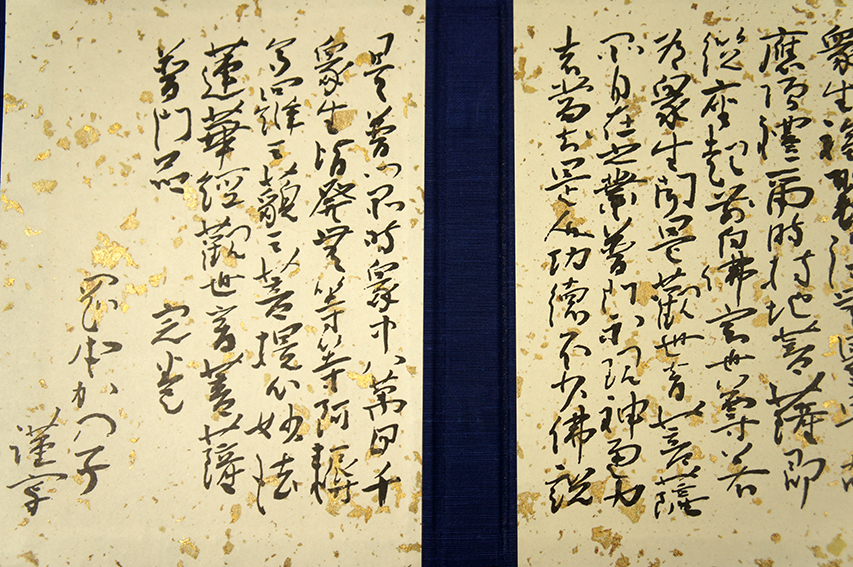 衆生福聚海無量是故
應頂禮爾時持地菩薩即
從座起前白佛言世尊若
有衆生聞是觀世音菩薩
品自在之業普門示現神通力
者當知是人功德不少佛說
是普門品時衆中八萬四千
衆生皆發無等等阿耨
多羅三藐三菩提心妙法
蓮華經觀世音菩薩
普門品 完巻
岡本かつ子
謹写